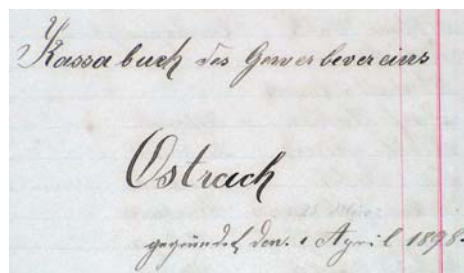 Kassabuch des Gewerbevereins
Ostrach
gegründet den 1 April 1898.